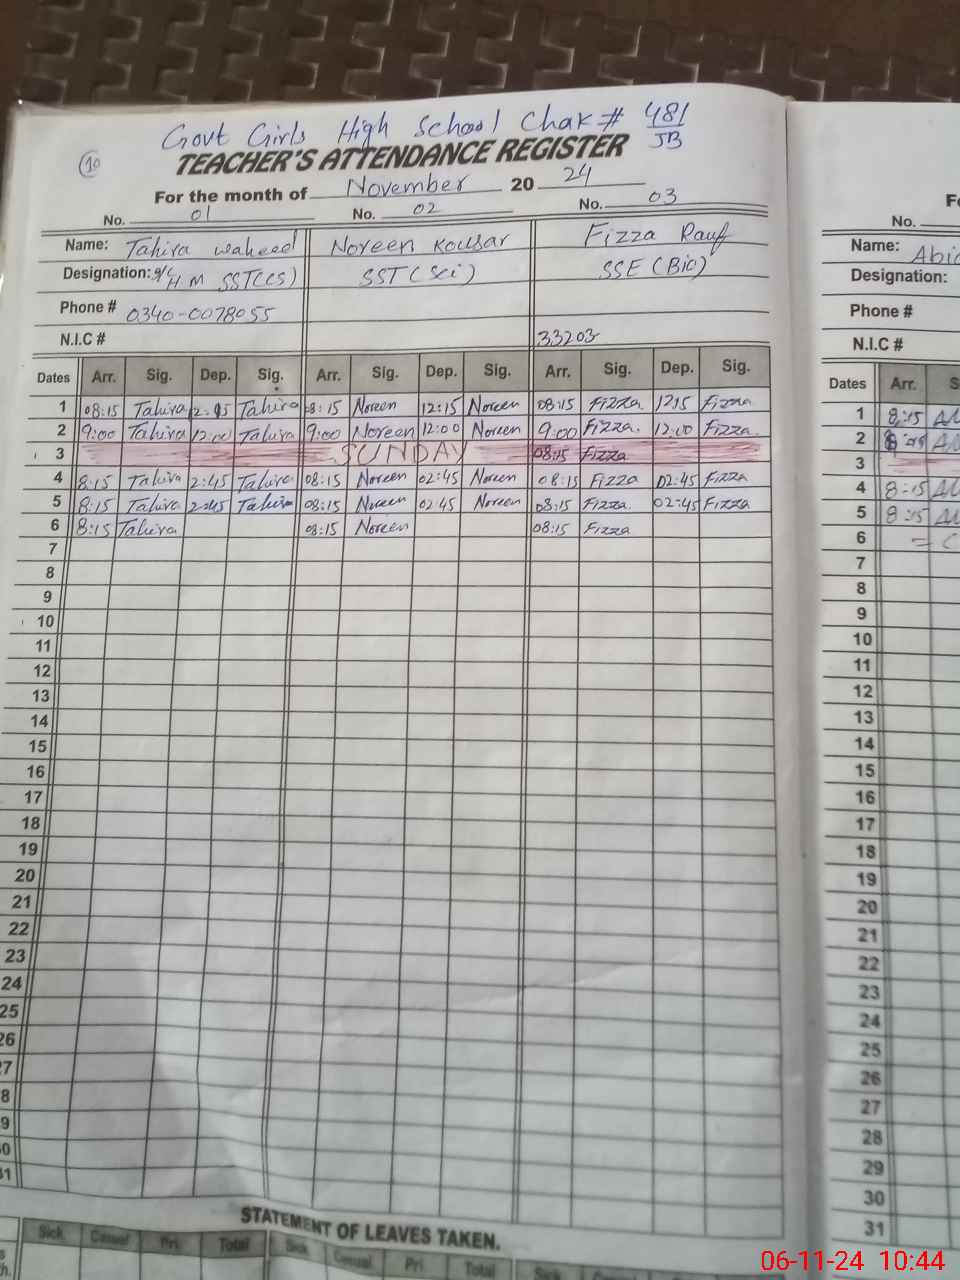 Govt Girls High School Chak # 481/JB
10
TEACHER'S ATTENDANCE REGISTER
For the month of November 2024
No. 01 No. 02 No. 03
Name: Tahira Waheed Noreen Kousar Fizza Rauf
Designation: I/C H M SST(CS) SST (Sci) SSE (Bio)
Phone # 0340-0078055
N.I.C # 33203
Dates Arr. Sig. Dep. Sig. Arr. Sig. Dep. Sig. Arr. Sig. Dep. Sig.
1 08:15 Tahira 12:15 Tahira 08:15 Noreen 12:15 Noreen 08:15 Fizza 12:15 Fizza
2 9:00 Tahira 12:00 Tahira 9:00 Noreen 12:00 Noreen 9:00 Fizza. 12:00 Fizza.
3 SUNDAY 08:15 Fizza
4 8:15 Tahira 2:45 Tahira 08:15 Noreen 02:45 Noreen 08:15 Fizza 02:45 Fizza
5 8:15 Tahira 2:45 Tahira 08:15 Noreen 02:45 Noreen 08:15 Fizza. 02:45 Fizza
6 8:15 Tahira 08:15 Noreen 08:15 Fizza
7
8
9
10
11
12
13
14
15
16
17
18
19
20
21
22
23
24
25
26
27
28
29
30
31
STATEMENT OF LEAVES TAKEN.
Sick Casual Pri. Total Sick Casual Pri. Total Sick Casual Pri. Total
No.
Name: Abid
Designation:
Phone #
N.I.C #
Dates Arr. S
1 8:15
2
3
4 8:15
5 8:15
6
7
8
9
10
11
12
13
14
15
16
17
18
19
20
21
22
23
24
25
26
27
28
29
30
31
06-11-24 10:44